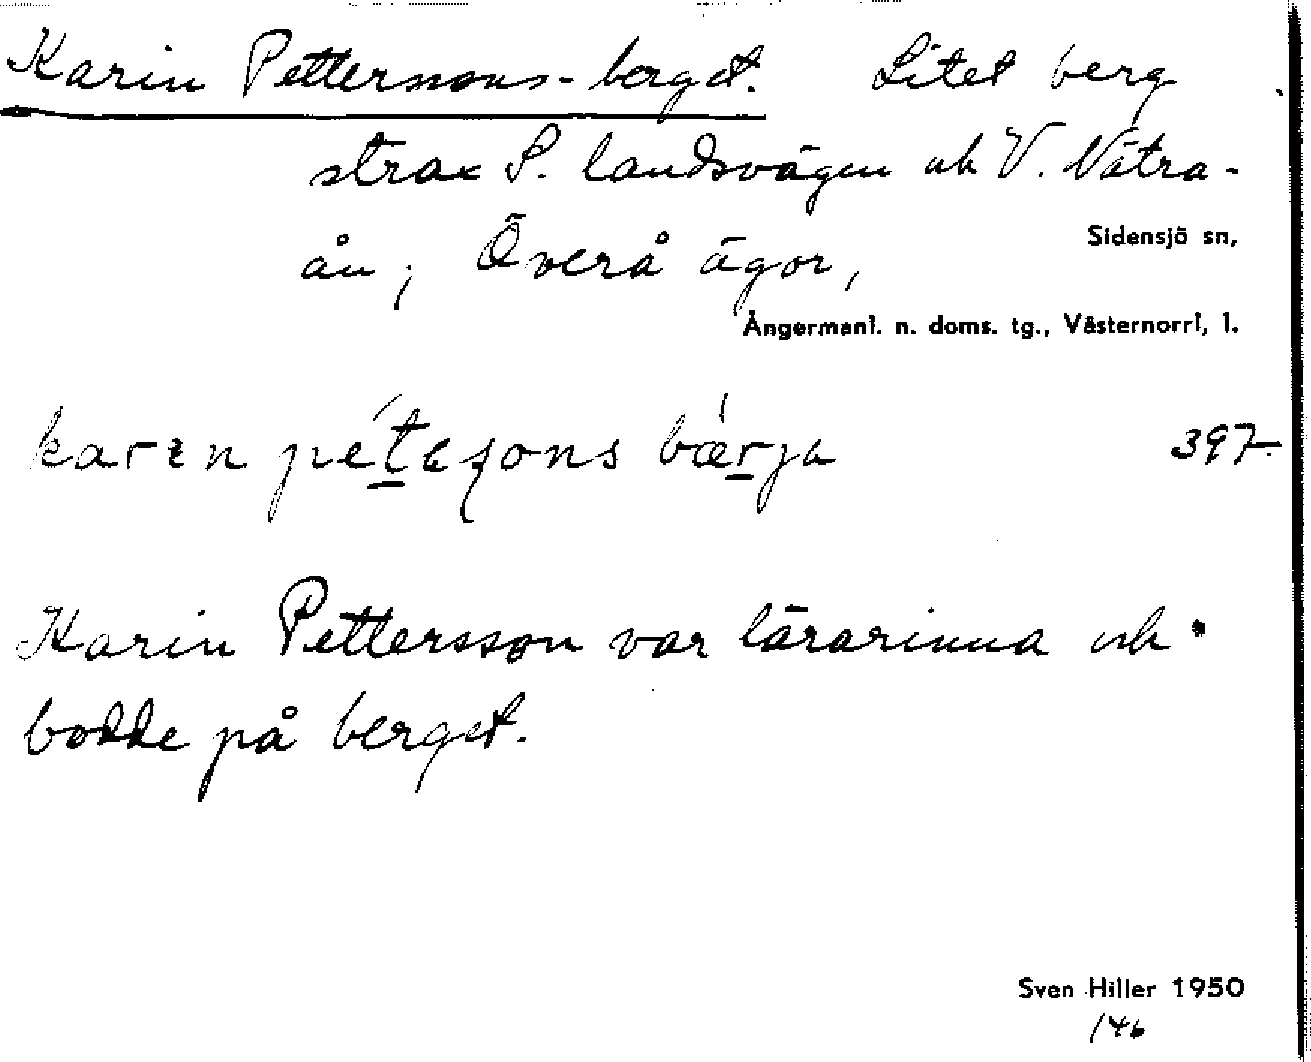 Karin Petterssons-berget. Litet berg
strax S. landsvägen och V. Nätra-
ån; Överå ägor,
Sidensjö sn,
Ångermanl. n. doms. tg., Västernorrl, l.
397
Karin Pettersson var lärarinna och
bodde på berget.
Sven Hiller 1950
146